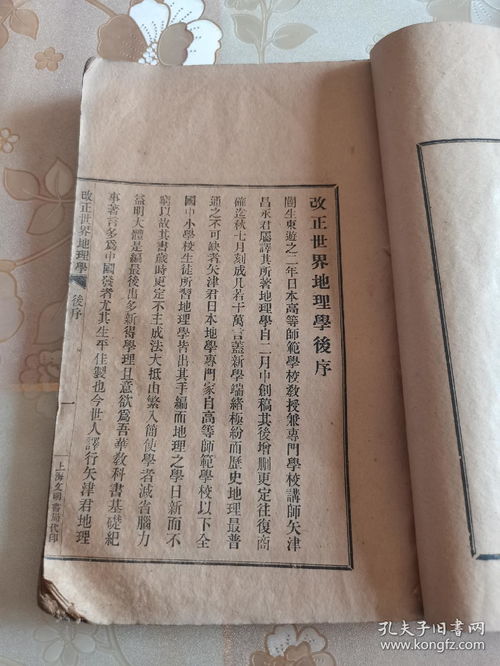 改正世界地理學後序
關生東遊之二年日本高等師範學校敎授兼專門學校講師矢津
昌永君屬譯其所著地理學自二月中創稿其後增刪更定往復商
確迄秋七月刻成凡若干萬言蓋新學端緖極紛而歷史地理最普
通之不可缺者矢津君日本地學專門家自高等師範學校以下全
國中小學校生徒所習地理學皆出其手編而地理之學日新而不
窮以故其書歲時更定不主成法大抵由繁入簡使學者減省腦力
益明大體是編最後出多新得學理且意欲爲吾華敎科書基礎紀
事著言多爲中國發者尤其生平佳製也今世人譯行矢津君地理
改正世界地理學 後序 一
上海文明書局代印
孔夫子旧书网
www.kongfz.com